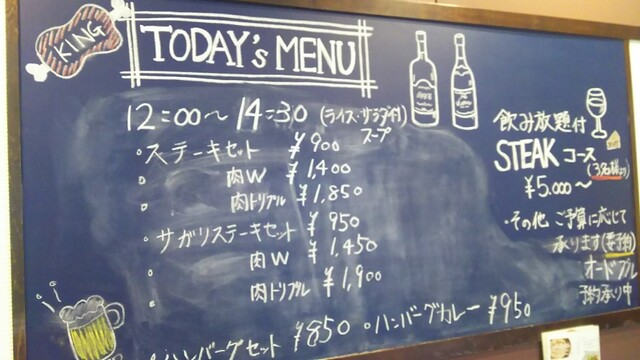 KING
TODAY's MENU
12:00〜14:30 (ライス・サラダ付)
スープ
・ステーキセット ¥900
・ 肉W ¥1,400
・ 肉トリプル ¥1,850
・サガリステーキセット ¥950
・ 肉W ¥1,450
・ 肉トリプル ¥1,900
・ハンバーグセット ¥850 ・ハンバーグカレー ¥950
飲み放題付
STEAK コース
(3名様より)
¥5.000〜
・その他 ご予算に応じて
承ります(要予約)
オードブル
予約承り中